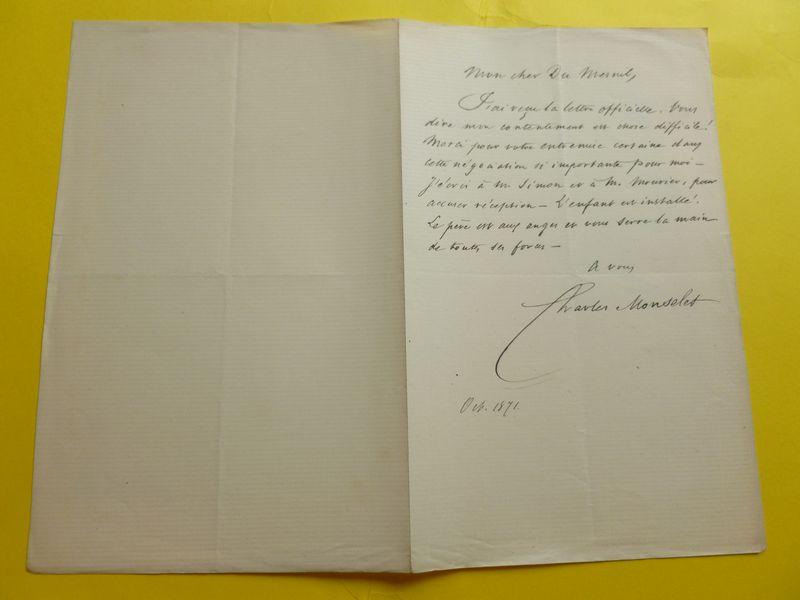 Mon cher Du Mesnil,
J'ai reçu la lettre officielle. Vous
dire mon contentement est chose difficile!
Merci pour votre entremise certaine dans
cette négociation si importante pour moi —
J'écris à M. Simon et à M. Mourier, pour
accuser réception — L'enfant est installé.
Le père est aux anges et vous serre la main
de toutes ses forces —
A vous
Charles Monselet
Oct. 1871.